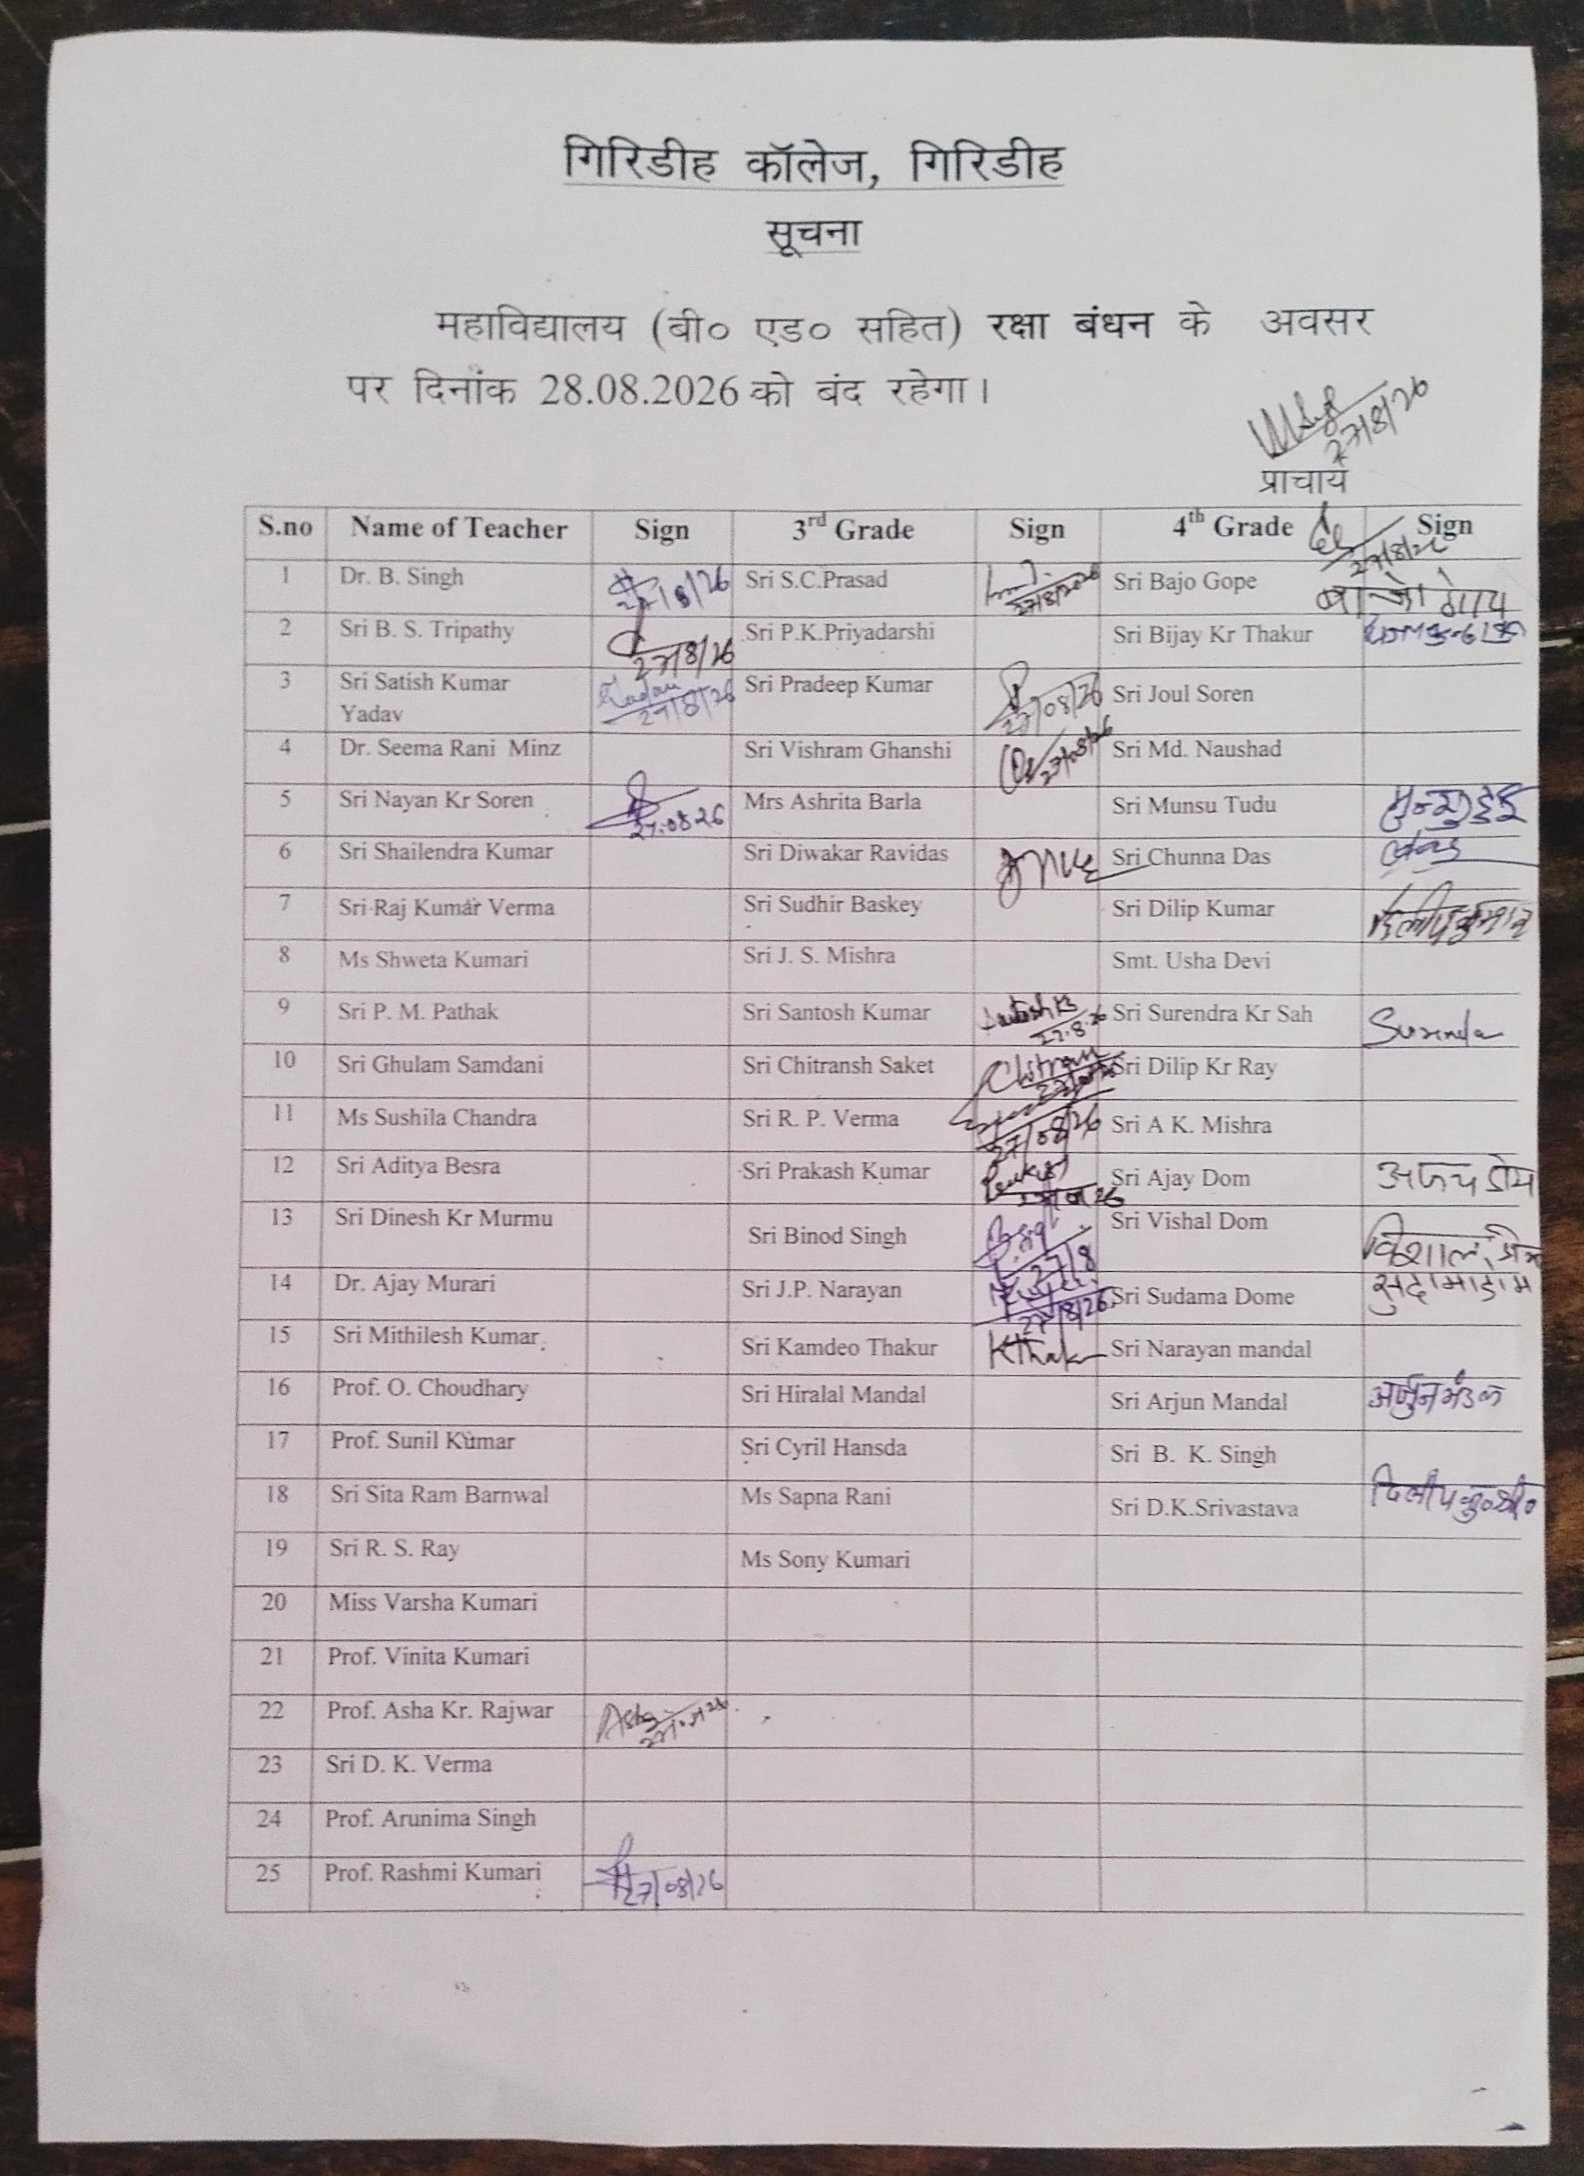 गिरिडीह कॉलेज, गिरिडीह
सूचना
महाविद्यालय (बी० एड० सहित) रक्षा बंधन के अवसर
पर दिनांक 28.08.2026 को बंद रहेगा।
27/8/26
प्राचार्य
S.no Name of Teacher Sign 3rd Grade Sign 4th Grade Sign
27/8/26
1 Dr. B. Singh 27/8/26 Sri S.C.Prasad 27/8/2026 Sri Bajo Gope बाजो गोप
2 Sri B. S. Tripathy 27/8/26 Sri P.K.Priyadarshi Sri Bijay Kr Thakur
3 Sri Satish Kumar Yadav Yadav 27/8/26 Sri Pradeep Kumar 27/08/26 Sri Joul Soren
4 Dr. Seema Rani Minz Sri Vishram Ghanshi 27/08/26 Sri Md. Naushad
5 Sri Nayan Kr Soren 27.08.26 Mrs Ashrita Barla Sri Munsu Tudu मुन्सु टुडू
6 Sri Shailendra Kumar Sri Diwakar Ravidas Sri Chunna Das
7 Sri Raj Kumar Verma Sri Sudhir Baskey Sri Dilip Kumar दिलीप कुमार
8 Ms Shweta Kumari Sri J. S. Mishra Smt. Usha Devi
9 Sri P. M. Pathak Sri Santosh Kumar Santosh Kr 27.8.26 Sri Surendra Kr Sah Surendra
10 Sri Ghulam Samdani Sri Chitransh Saket Chitransh Sri Dilip Kr Ray
11 Ms Sushila Chandra Sri R. P. Verma 27/08/26 Sri A K. Mishra
12 Sri Aditya Besra Sri Prakash Kumar Sri Ajay Dom अजय डोम
13 Sri Dinesh Kr Murmu Sri Binod Singh 27/8 Sri Vishal Dom विशाल डोम
14 Dr. Ajay Murari Sri J.P. Narayan 27/8/26 Sri Sudama Dome सुदामा डोम
15 Sri Mithilesh Kumar Sri Kamdeo Thakur KThakur Sri Narayan mandal
16 Prof. O. Choudhary Sri Hiralal Mandal Sri Arjun Mandal अर्जुन मंडल
17 Prof. Sunil Kumar Sri Cyril Hansda Sri B. K. Singh
18 Sri Sita Ram Barnwal Ms Sapna Rani Sri D.K.Srivastava दिलीप कु० श्री०
19 Sri R. S. Ray Ms Sony Kumari
20 Miss Varsha Kumari
21 Prof. Vinita Kumari
22 Prof. Asha Kr. Rajwar Asha
23 Sri D. K. Verma
24 Prof. Arunima Singh
25 Prof. Rashmi Kumari 27/08/26